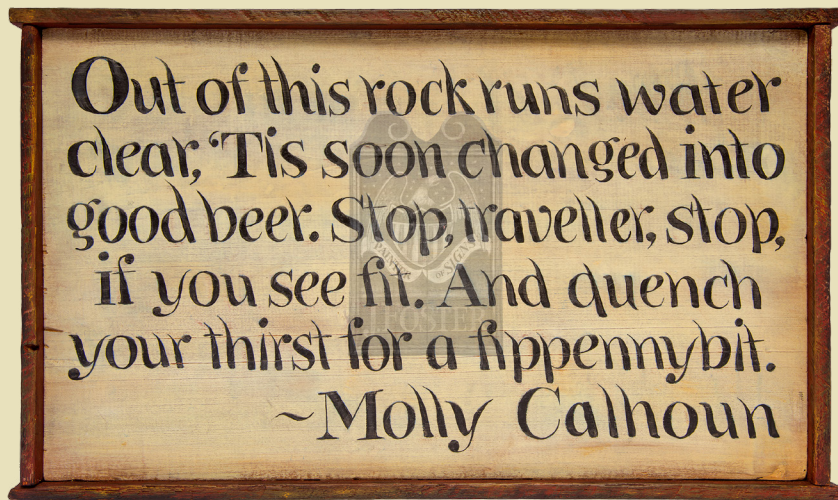 Out of this rock runs water
clear, 'Tis soon changed into
good beer. Stop, traveller, stop,
if you see fit. And quench
your thirst for a fippennybit.
~Molly Calhoun
PAINTER OF SIGNS